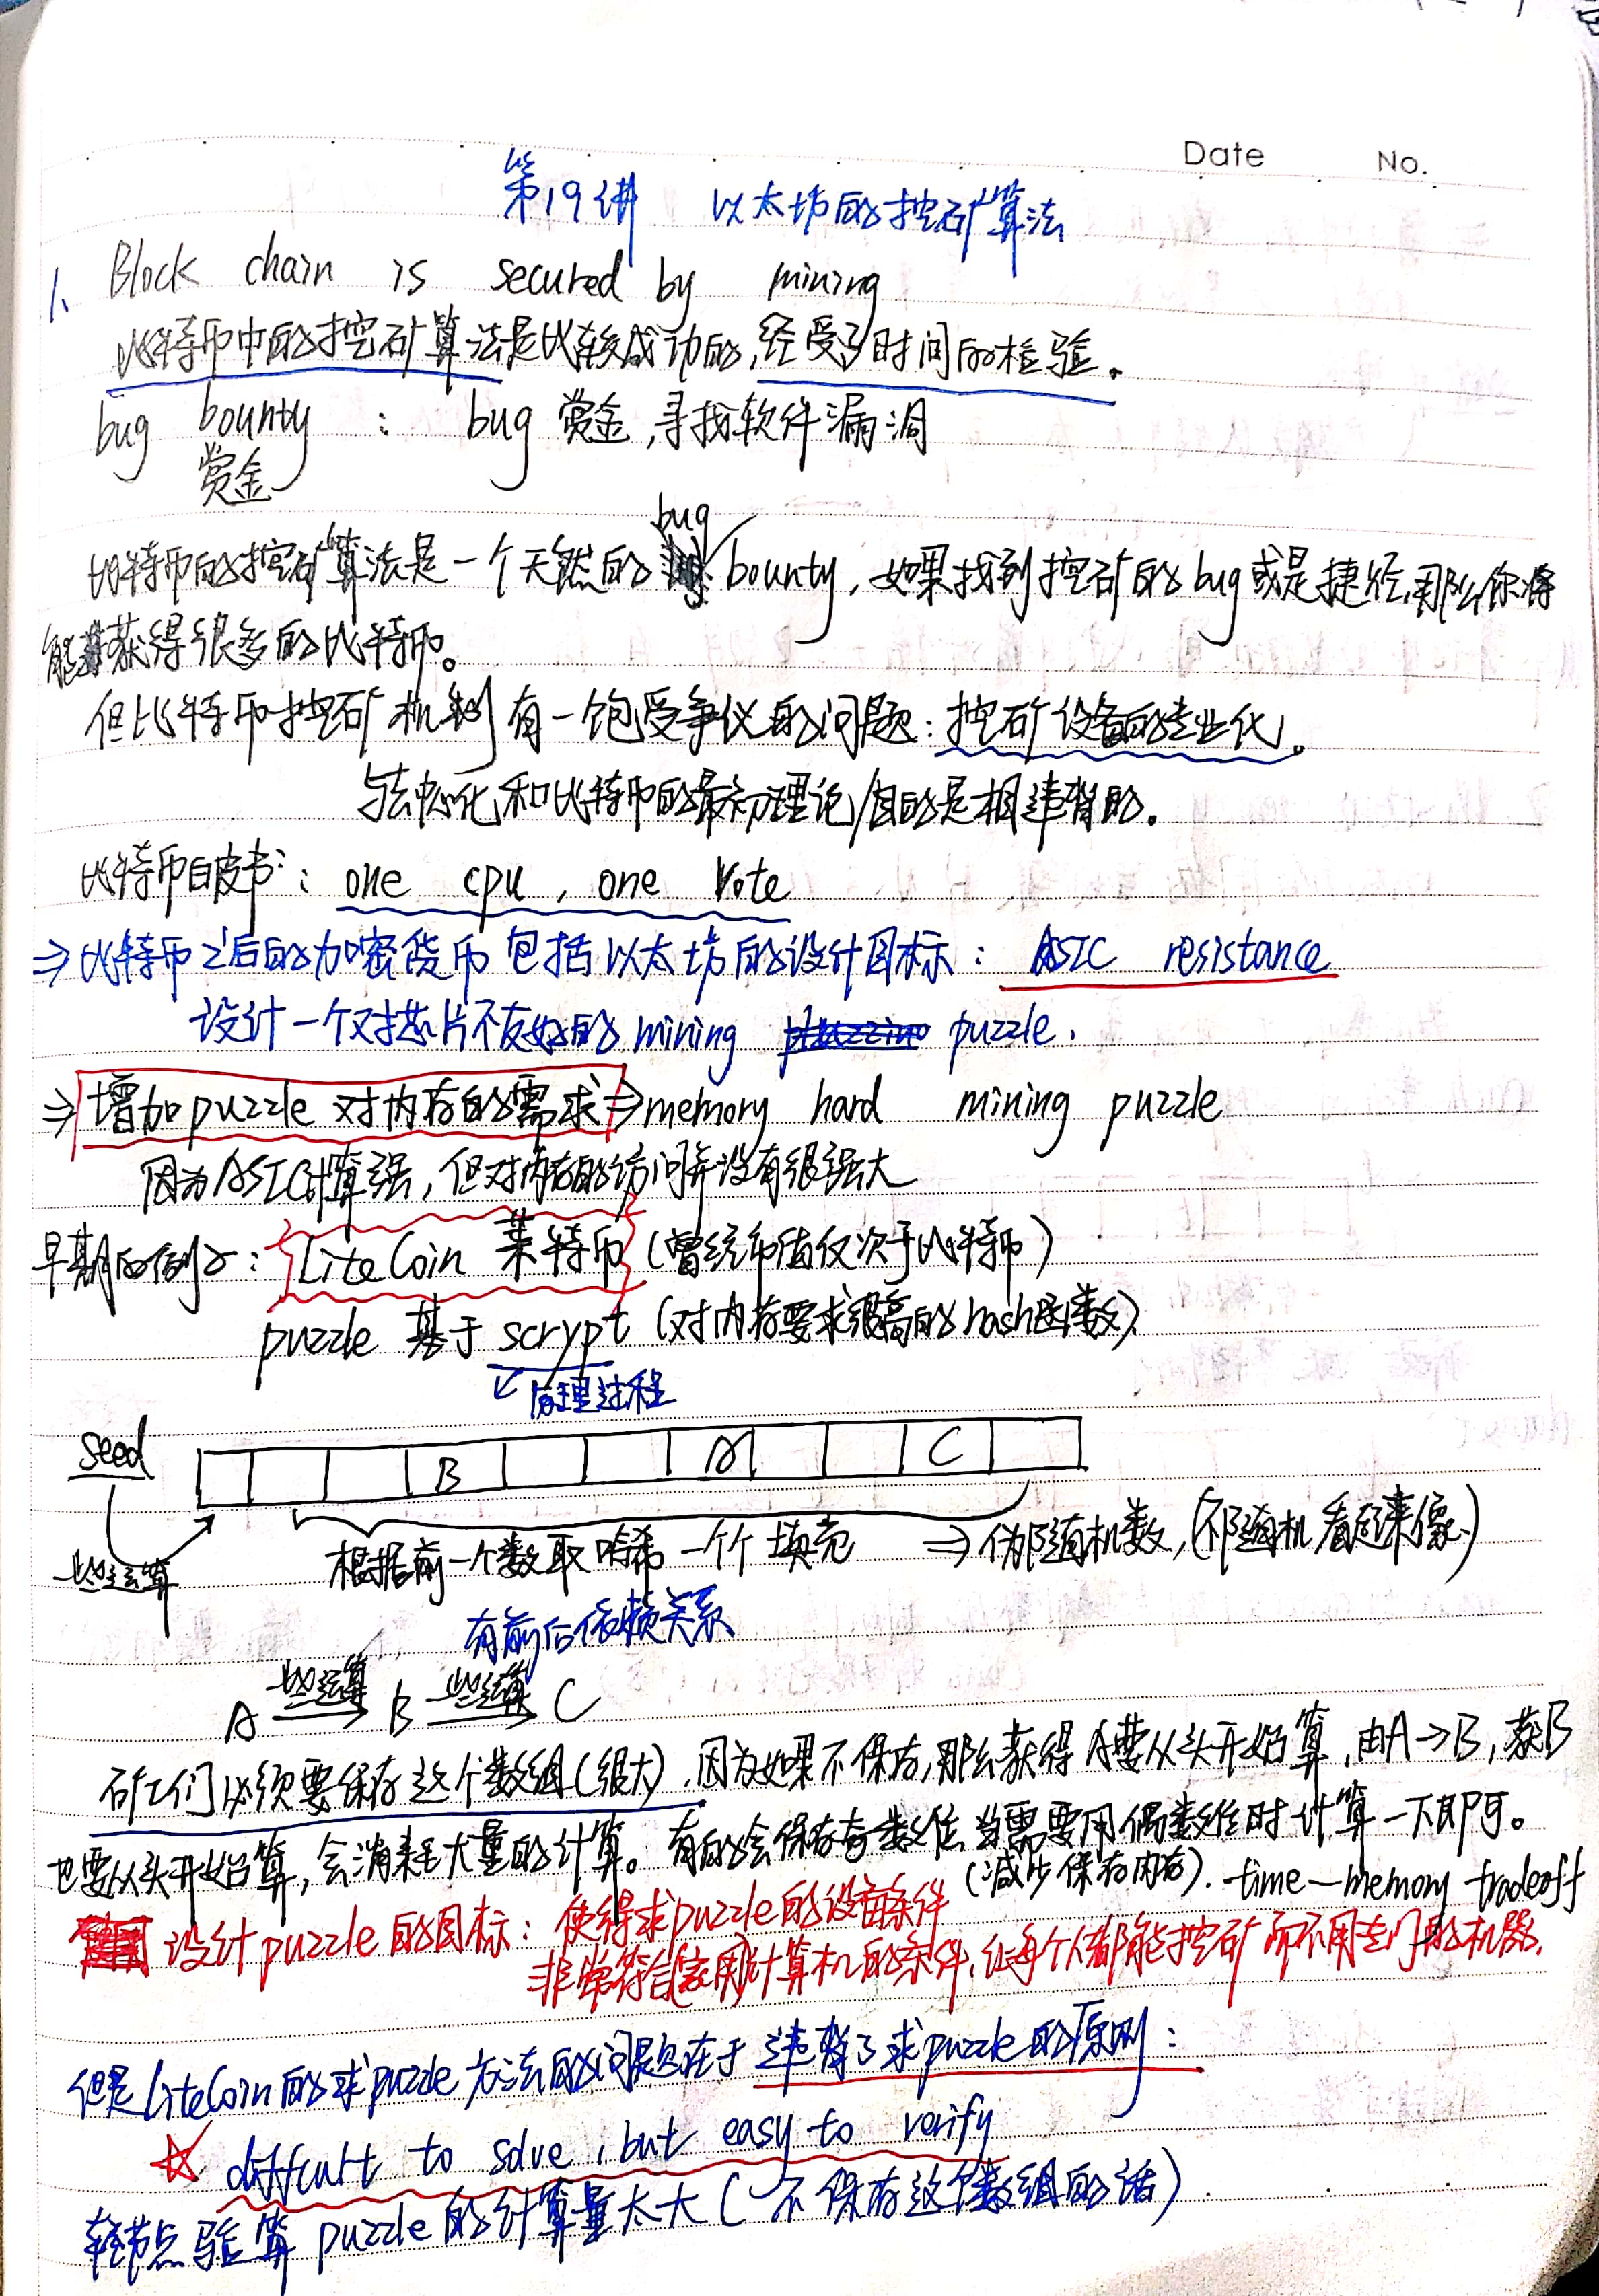 Date No.
第19讲 以太坊的挖矿算法
1、Block chain is secured by mining
比特币中的挖矿算法是比较成功的,经受了时间的检验。
bug bounty : bug 赏金,寻找软件漏洞
赏金
bug
比特币的挖矿算法是一个天然的 bounty,如果找到挖矿的bug或是捷径,那么你将
能获得很多的比特币。
但比特币挖矿机制有一饱受争议的问题:挖矿设备的专业化。
与去中心化和比特币的最初理论/目的是相违背的。
比特币白皮书:one cpu , one vote
⇒比特币之后的加密货币包括以太坊的设计目标:ASIC resistance
设计一个对芯片不友好的 mining puzzle.
⇒增加puzzle对内存的需求⇒memory hard mining puzzle
因为ASIC计算强,但对内存的访问并没有很强大
早期的例子:LiteCoin 莱特币(曾经市值仅次于比特币)
puzzle 基于 scrypt (对内存要求很高的hash函数)
↙原理过程
seed
B A C
一些运算 根据前一个数取哈希一个个填充 ⇒伪随机数,(不随机 看起来像)
有前后依赖关系
A 一些运算 B 一些运算 C
矿工们必须要保存这个数组(很大),因为如果不保存,那么获得A要从头开始算,由A→B,获B
也要从头开始算,会消耗大量的计算。有的会保存奇数位,当需要用偶数位时计算一下即可。
(减少保存内存).time—memory tradeoff
设计puzzle的目标:使得求puzzle的设备条件
非常符合(家用)计算机的条件,让每个人都能挖矿而不用专门的机器.
但是LiteCoin的求puzzle方法的问题在于违背了求puzzle的原则:
☆ difficult to solve , but easy to verify
轻节点验算puzzle的计算量太大(不保存这个数组的话)